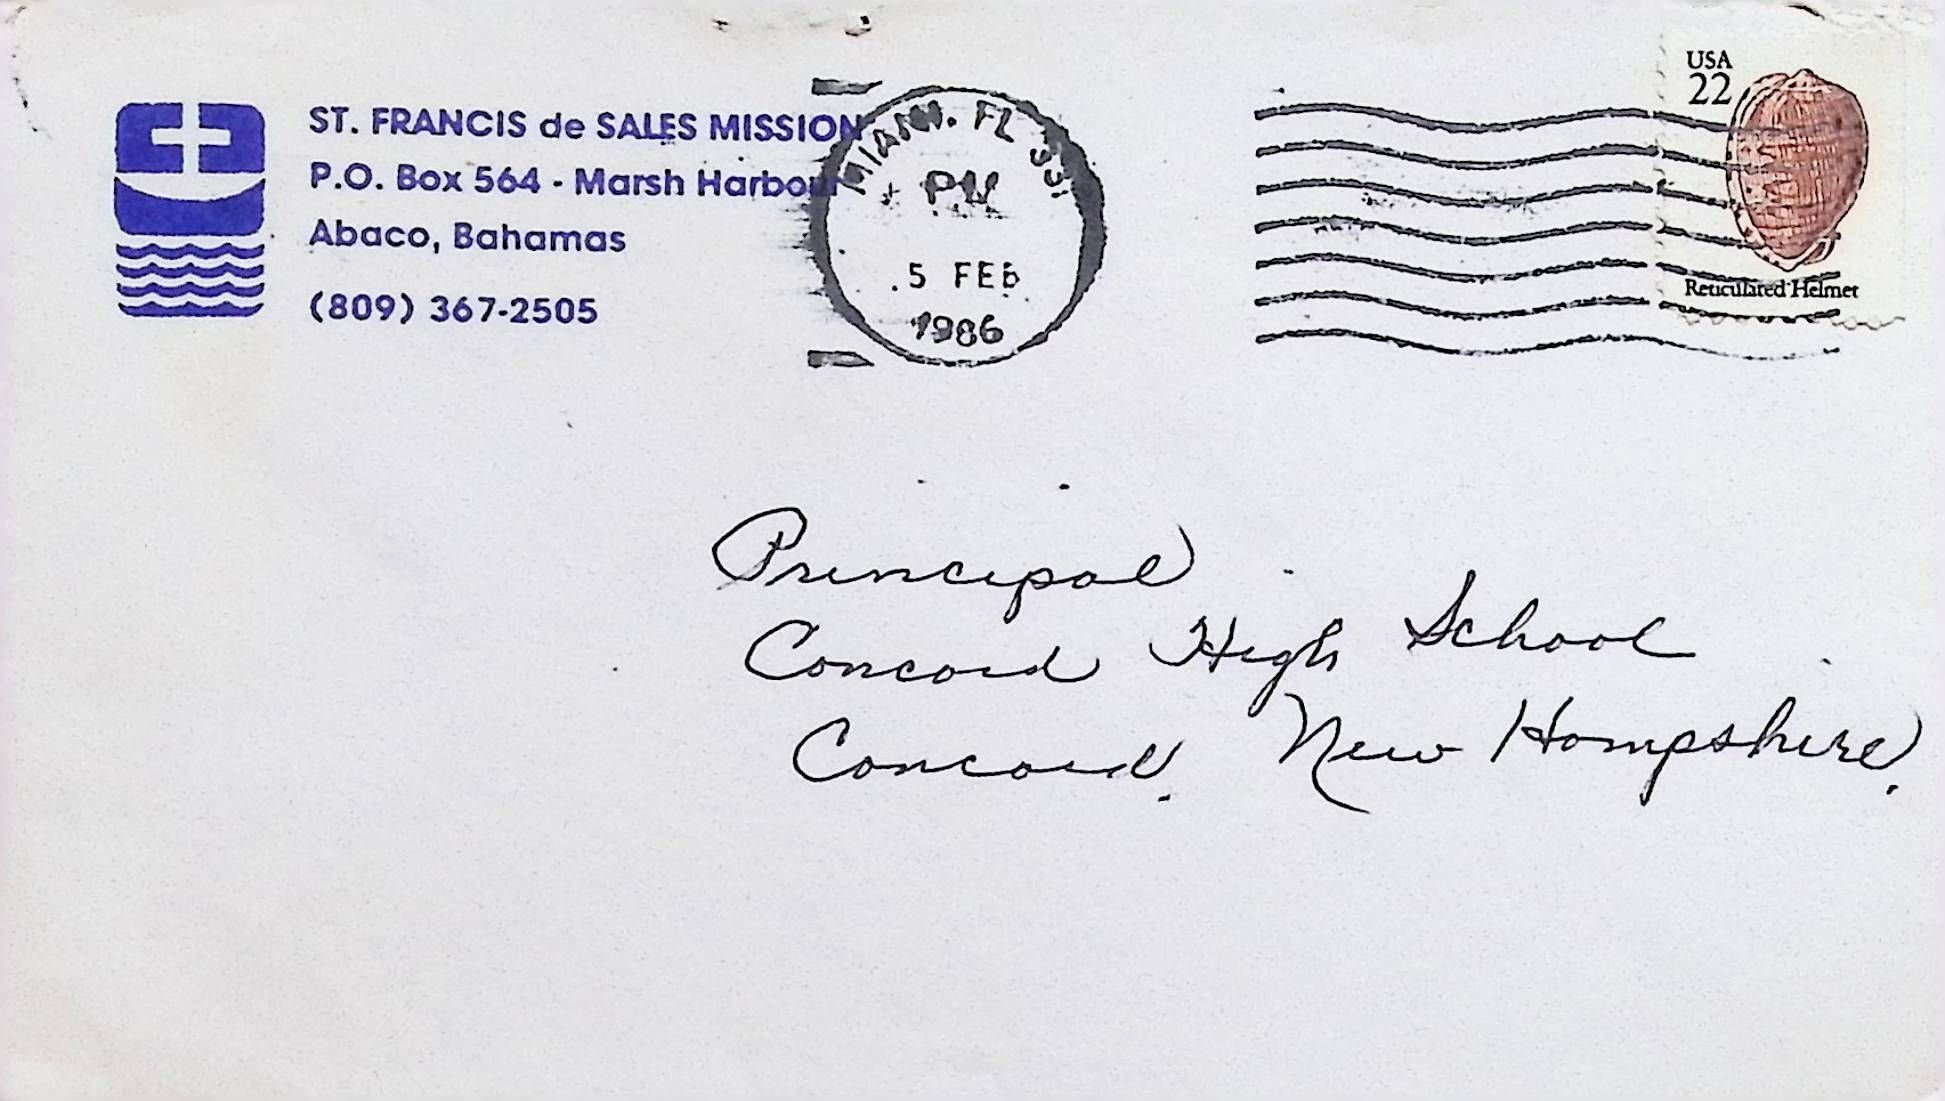 ST. FRANCIS de SALES MISSION
P.O. Box 564 - Marsh Harbour
Abaco, Bahamas
(809) 367-2505
MIAMI, FL 331
PM
5 FEB
1986
USA
22
Reticulated Helmet
Principal
Concord High School
Concord, New Hampshire.